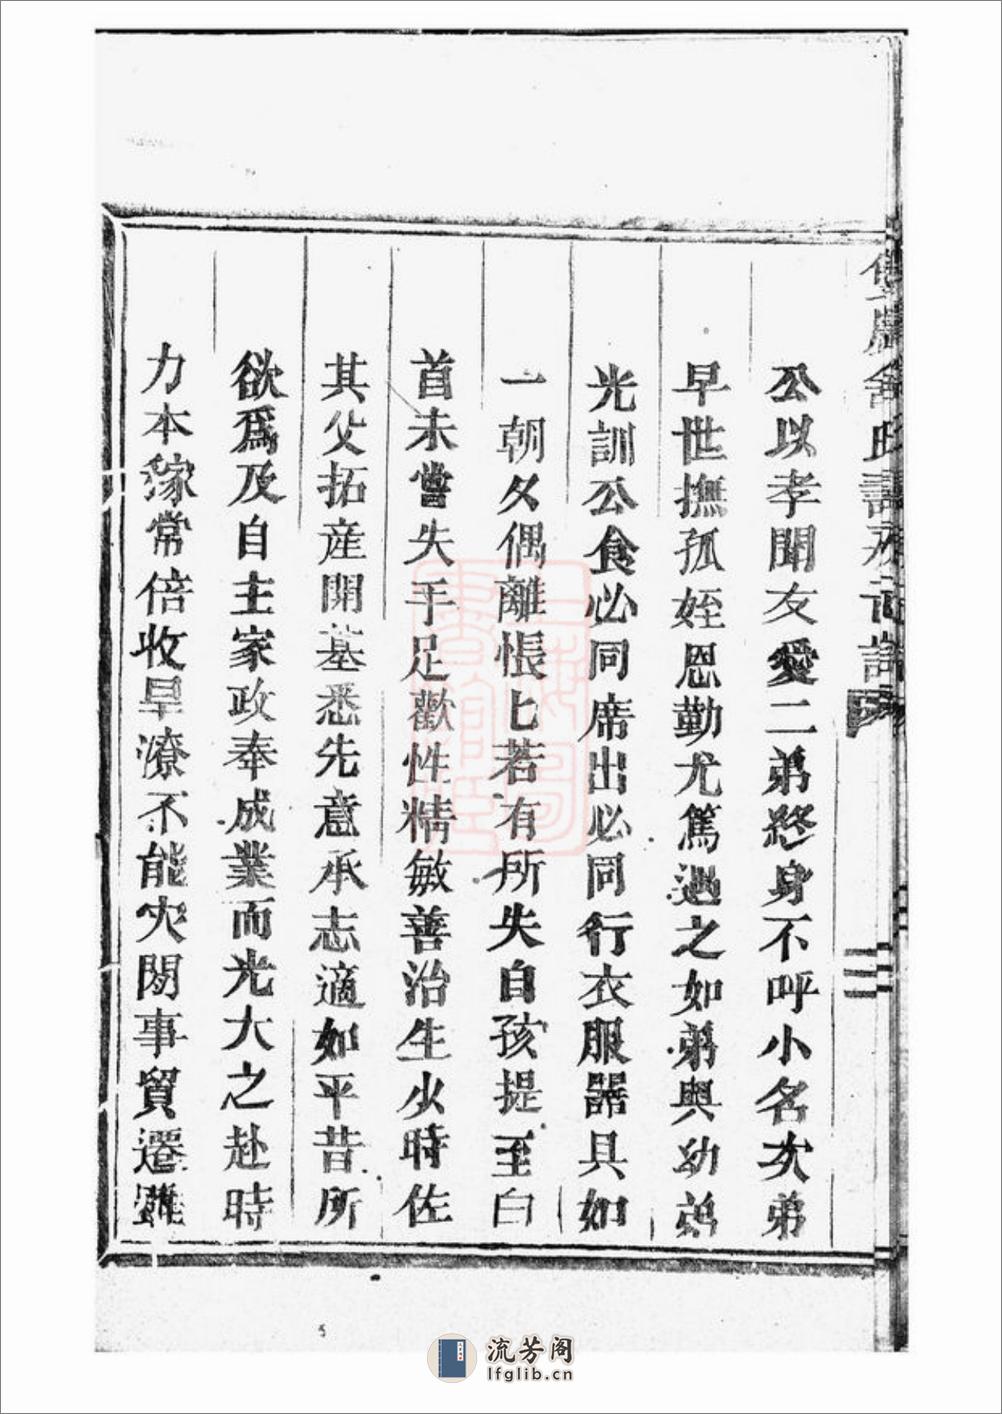 公以孝聞友愛二弟終身不呼小名次弟
早世撫孤姪恩勤尤篤過之如弟與幼弟
光訓公食必同席出必同行衣服器具如
一朝夕偶離悵匕若有所失自孩提至白
首未嘗失手足歡性精敏善治生少時佐
其父拓産開基悉先意承志適如平昔所
欲爲及自主家政奉成業而光大之赴時
力本稼常倍收旱潦不能灾閒事貿遷雖
流芳阁
lfglib.cn